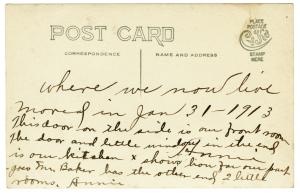 POST CARD
CORRESPONDENCE
NAME AND ADDRESS
PLACE
POSTAGE
STAMP
HERE
where we now live
Moved in Jan 31-1913
This door on the side is our front room
the door and little window in the end
is our kitchen x shows how far our part
goes Mr. Baker has the other end 2 little
rooms. Annie